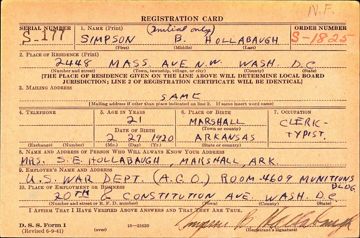 REGISTRATION CARD
N.F.
SERIAL NUMBER
1. NAME (Print) (Initial only)
ORDER NUMBER
S-177
SIMPSON B. HOLLABAUGH
S-1825
(First) (Middle) (Last)
2. PLACE OF RESIDENCE (Print)
2448 MASS. AVE N.W. WASH. D.C
(Number and street) (Town, township, village, or city) (County) (State)
[THE PLACE OF RESIDENCE GIVEN ON THE LINE ABOVE WILL DETERMINE LOCAL BOARD
JURISDICTION; LINE 2 OF REGISTRATION CERTIFICATE WILL BE IDENTICAL]
3. MAILING ADDRESS
SAME
[Mailing address if other than place indicated on line 2. If same insert word same]
4. TELEPHONE
5. AGE IN YEARS
6. PLACE OF BIRTH
7. OCCUPATION
21
MARSHALL
CLERK-
DATE OF BIRTH
(Town or county)
TYPIST.
2 27 1920
ARKANSAS
(Exchange) (Number)
(Mo.) (Day) (Yr.)
(State or country)
8. NAME AND ADDRESS OF PERSON WHO WILL ALWAYS KNOW YOUR ADDRESS
MRS. S.E. HOLLABAUGH, MARSHALL, ARK.
9. EMPLOYER'S NAME AND ADDRESS
U.S. WAR DEPT. (A.G.O.) ROOM 4609 MUNITIONS
BLDG
10. PLACE OF EMPLOYMENT OR BUSINESS
20TH & CONSTITUTION AVE. WASH. D.C
(Number and street or R. F. D. number) (Town) (County) (State)
I AFFIRM THAT I HAVE VERIFIED ABOVE ANSWERS AND THAT THEY ARE TRUE.
D. S. S. Form 1
(Revised 6-9-41)
Simpson B. Hollabaugh